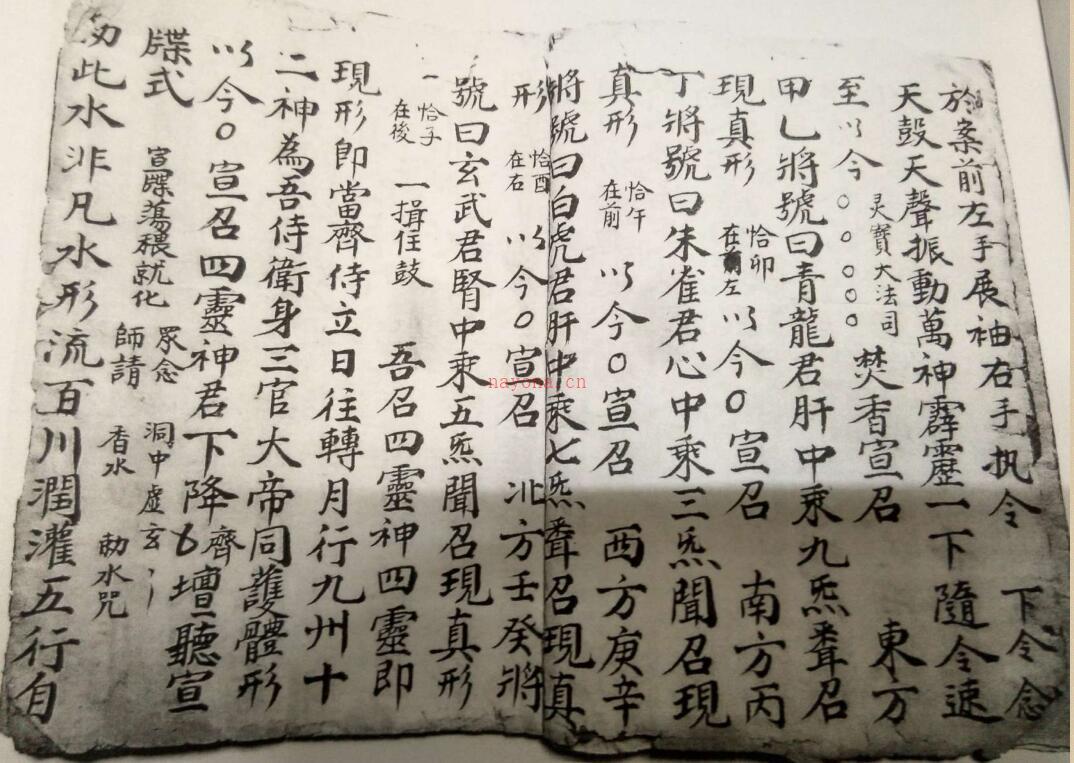 於案前左手展袖右手执令　下令念
天鼓天聲振動萬神霹靂一下隨令速
至以今○○○○○　灵寳大法司　焚香宣召　東方
甲乙將號曰青龍君肝中乘九炁聞召
現真形　恰卯在左　以今○宣召　南方丙
丁將號曰朱雀君心中乘三炁聞召現
真形　恰午在前　以今○宣召　西方庚辛
將號曰白虎君肝中乘七炁聞召現真
形　恰酉在右　以今○宣召　北方壬癸將
號曰玄武君腎中乘五炁聞召現真形
一　恰子在後　一揖住鼓　吾召四靈神四靈即
現形即當齊侍立日往轉月行九州十
二神為吾侍衛身三官大帝同護體形
以今○宣召四靈神君下降齊壇聽宣
牒式　宣牒蕩穢就化　眾念　師請　洞中虛玄　香水　勅水咒
勅此水非凡水形流百川潤灌五行自
nayona.cn